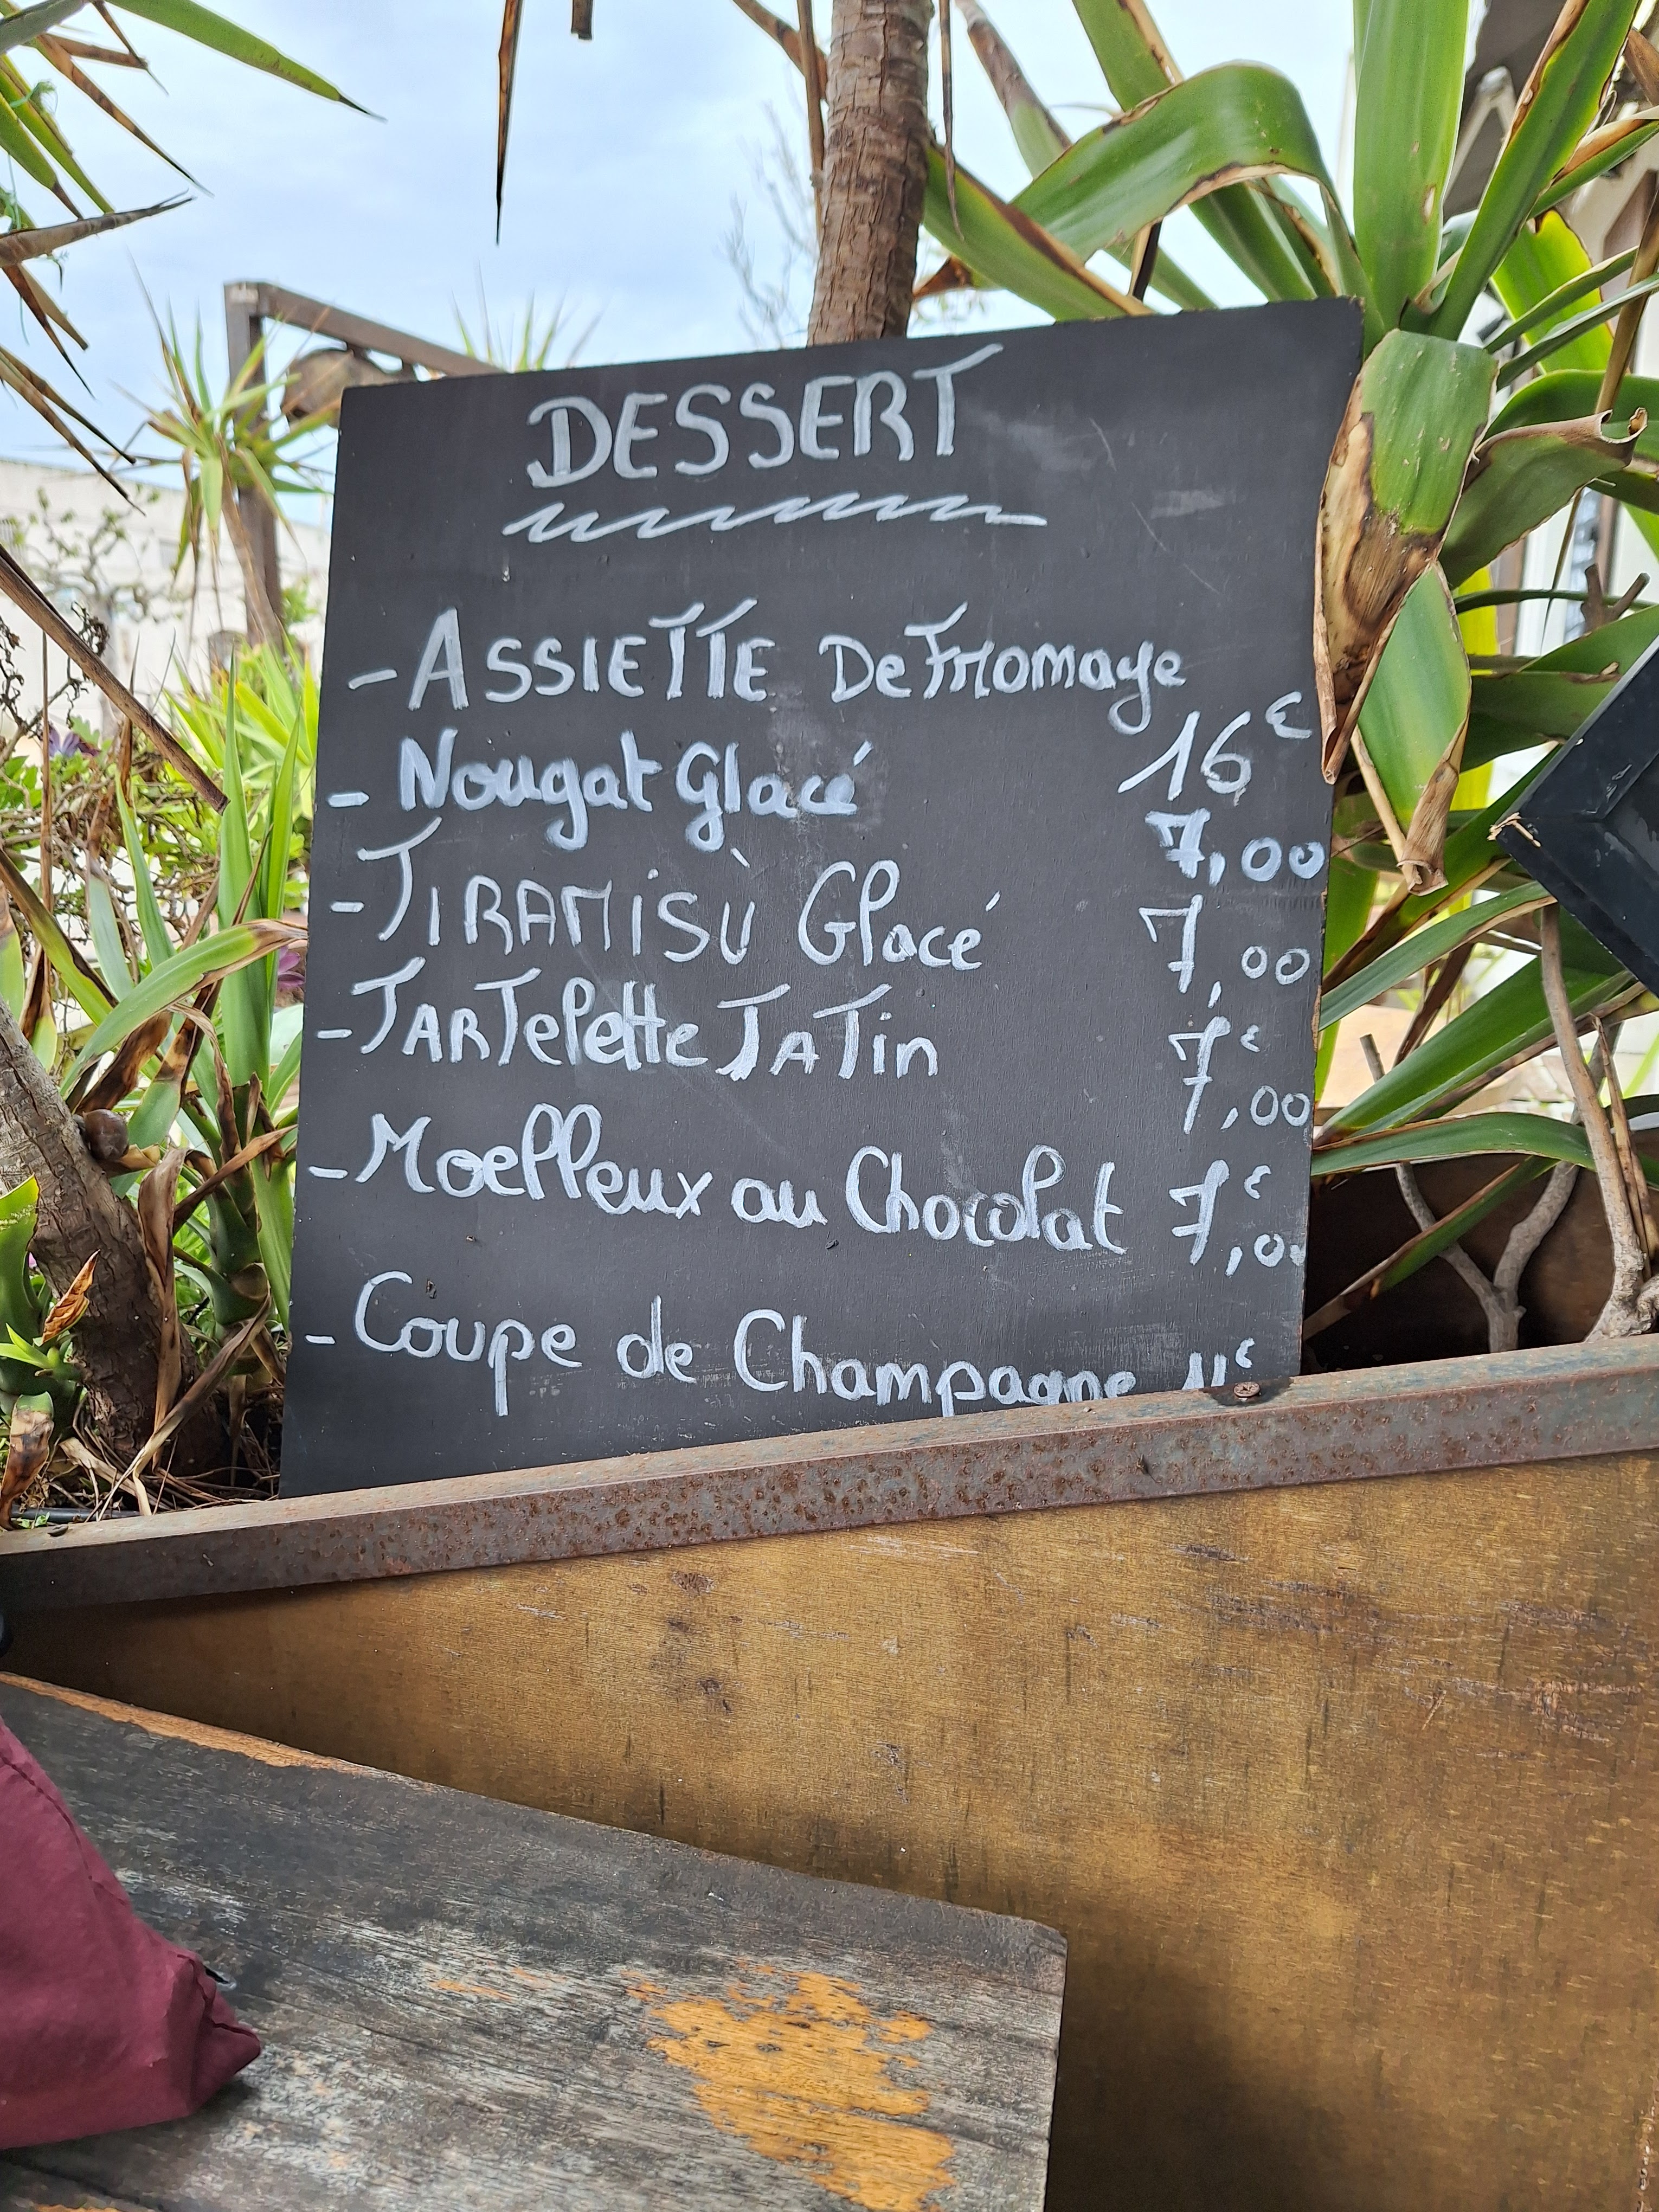 DESSERT
- ASSIETTE De Fromage
16€
- Nougat Glacé 7,00
- TIRAMiSÙ Glacé 7,00
- TARTelette TATin 7€
7,00
- Moelleux au Chocolat 7€
7,00
- Coupe de Champagne 11€